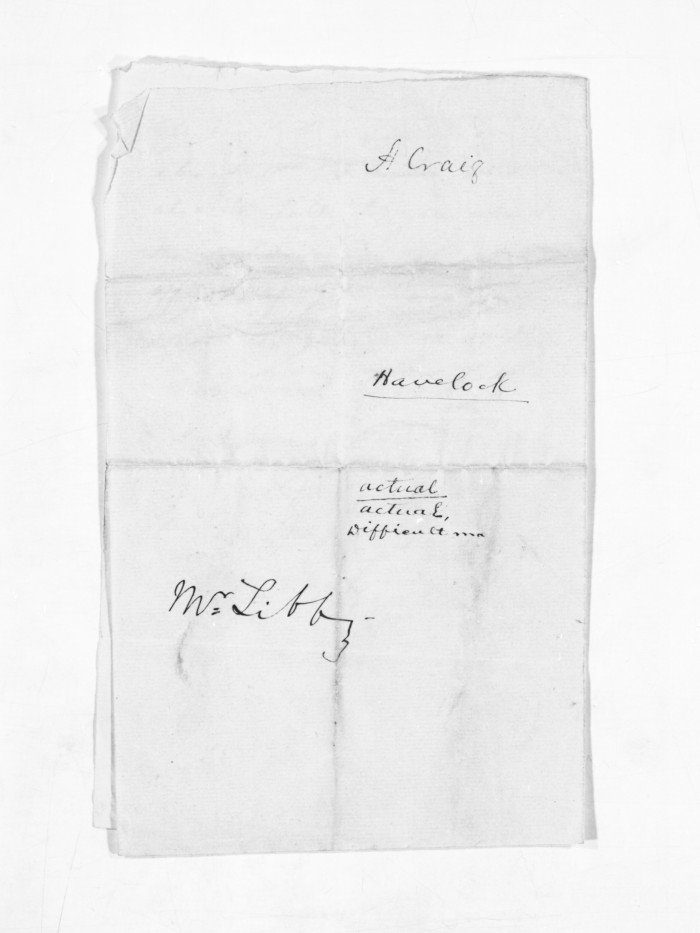 A Craig
Havelock
actual
actual,
Difficult ma
Mr. Libby